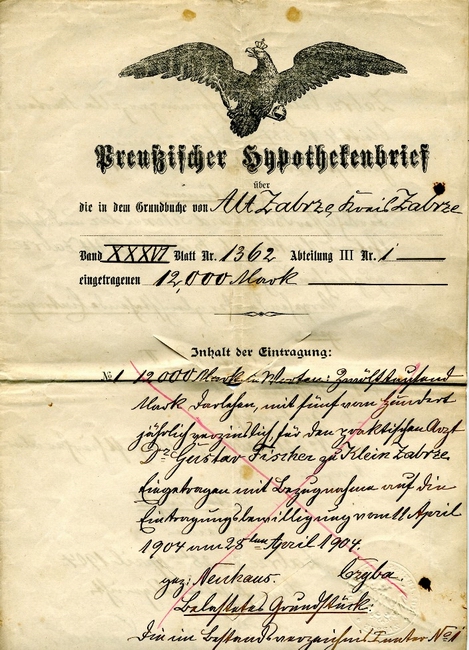 Preußischer Hypothekenbrief
über
die in dem Grundbuche von Alt Zabrze, Kreis Zabrze
Band XXXVI Blatt Nr. 1362 Abteilung III Nr. 1
eingetragenen 12,000 Mark
Inhalt der Eintragung:
No 1 12 000 Mark in Worten: Zwölftausend
Mark Darlehen, mit fünf vom Hundert
jährlich verzinslich, für den praktischen Arzt
Dr. Gustav Fischer zu Klein Zabrze
Eingetragen mit Bezugnahme auf die
Eintragungsbewilligung vom 11 April
1904 am 28ten April 1904.
gez: Neuhaus. Czyba.
Belastetes Grundstück:
Die im Bestandsverzeichnis I unter No 1